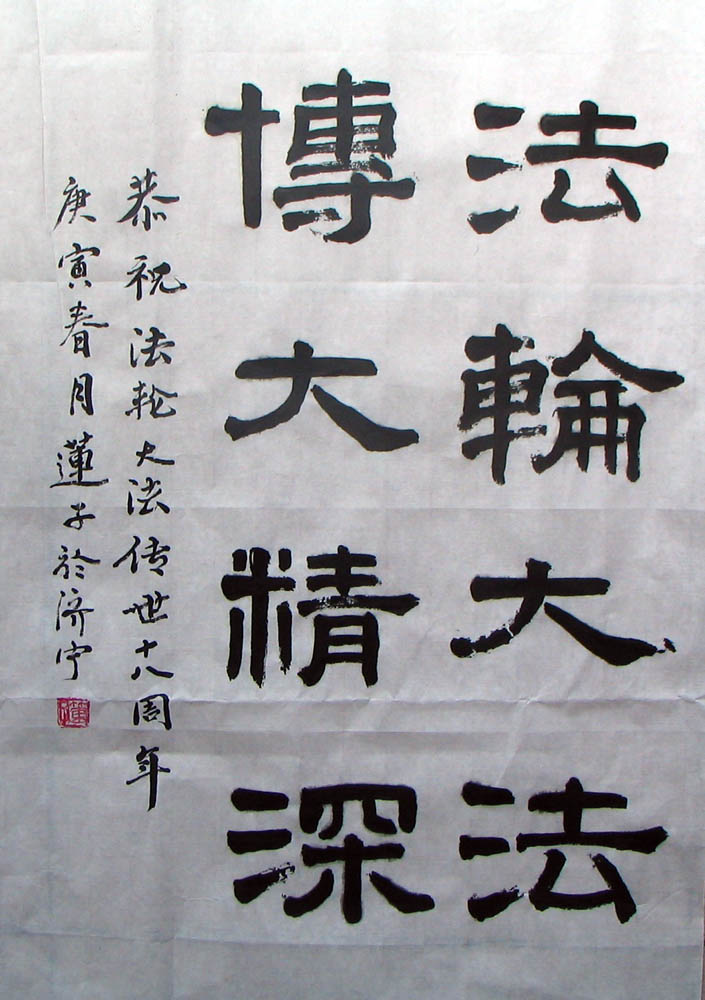 法輪大法
博大精深
恭祝法轮大法传世十八周年
庚寅春月蓮子於济宁